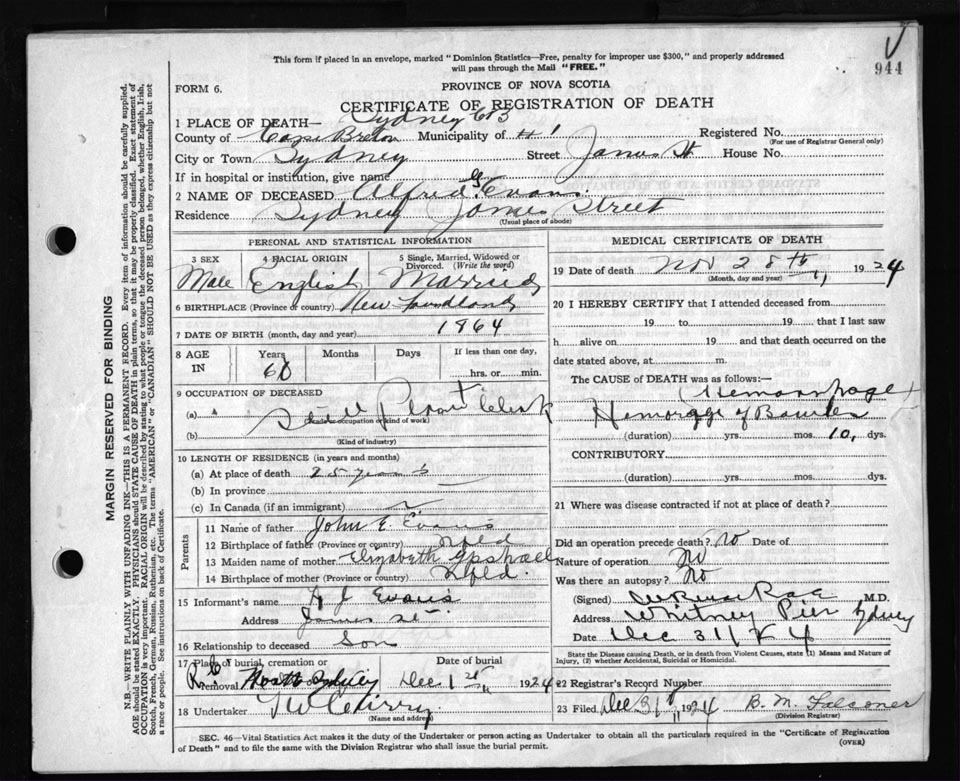 This form if placed in an envelope, marked "Dominion Statistics—Free, penalty for improper use $300," and properly addressed
will pass through the Mail "FREE."
944
FORM 6.
PROVINCE OF NOVA SCOTIA
CERTIFICATE OF REGISTRATION OF DEATH
1 PLACE OF DEATH— Sydney CB
County of Cape Breton Municipality of Registered No.
(For use of Registrar General only)
City or Town Sydney Street James St House No.
If in hospital or institution, give name
2 NAME OF DECEASED Alfred G. Evans.
Residence Sydney James Street
(Usual place of abode)
PERSONAL AND STATISTICAL INFORMATION
3 SEX
Male
4 RACIAL ORIGIN
English
5 Single, Married, Widowed or Divorced. (Write the word)
Married
6 BIRTHPLACE (Province or country) New Foundland
7 DATE OF BIRTH (month, day and year) 1864
8 AGE IN
Years Months Days If less than one day,
60 hrs. or min.
9 OCCUPATION OF DECEASED
(a) Plant Clerk
(Trade or occupation or kind of work)
(b)
(Kind of industry)
10 LENGTH OF RESIDENCE (in years and months)
(a) At place of death 25 years
(b) In province
(c) In Canada (if an immigrant)
Parents
11 Name of father John E. Evans
12 Birthplace of father (Province or country) Nfld
13 Maiden name of mother Elizabeth
14 Birthplace of mother (Province or country) Nfld.
15 Informant's name J Evans
Address James St
16 Relationship to deceased Son
17 Place of burial, cremation or Removal North Sydney
Date of burial Dec 1st 1924
18 Undertaker
(Name and address)
MEDICAL CERTIFICATE OF DEATH
19 Date of death Nov 28th 1924
(Month, day and year)
20 I HEREBY CERTIFY that I attended deceased from
19 to 19 that I last saw
h alive on 19 and that death occurred on the
date stated above, at m.
The CAUSE OF DEATH was as follows:—
(Hemorrhage)
Hemorrage of Bowels
(duration) yrs. mos. 10, dys.
CONTRIBUTORY
(duration) yrs. mos. dys.
21 Where was disease contracted if not at place of death?
Did an operation precede death? No Date of
Nature of operation No
Was there an autopsy? No
(Signed) Rae M.D.
Address Whitney Pier Sydney
Date Dec 31
State the Disease causing Death, or in death from Violent Causes, state (1) Means and Nature of
Injury, (2) whether Accidental, Suicidal or Homicidal.
22 Registrar's Record Number
23 Filed Dec 31 1924 B. M. Falconer
(Division Registrar)
SEC. 46—Vital Statistics Act makes it the duty of the Undertaker or person acting as Undertaker to obtain all the particulars required in the "Certificate of Registration
of Death" and to file the same with the Division Registrar who shall issue the burial permit.
(OVER)
MARGIN RESERVED FOR BINDING
N.B.—WRITE PLAINLY WITH UNFADING INK—THIS IS A PERMANENT RECORD. Every item of information should be carefully supplied.
AGE should be stated EXACTLY. PHYSICIANS should STATE CAUSE OF DEATH in plain terms, so that it may be properly classified. Exact statement of
OCCUPATION is very important. RACIAL ORIGIN will be described by stating to what people or tongue the deceased person belonged, whether English, Irish,
Scotch, French, German, Russian, Ruthenian, etc. The terms "AMERICAN" or "CANADIAN" SHOULD NOT BE USED as they express citizenship but not
a race or people. See instructions on back of Certificate.